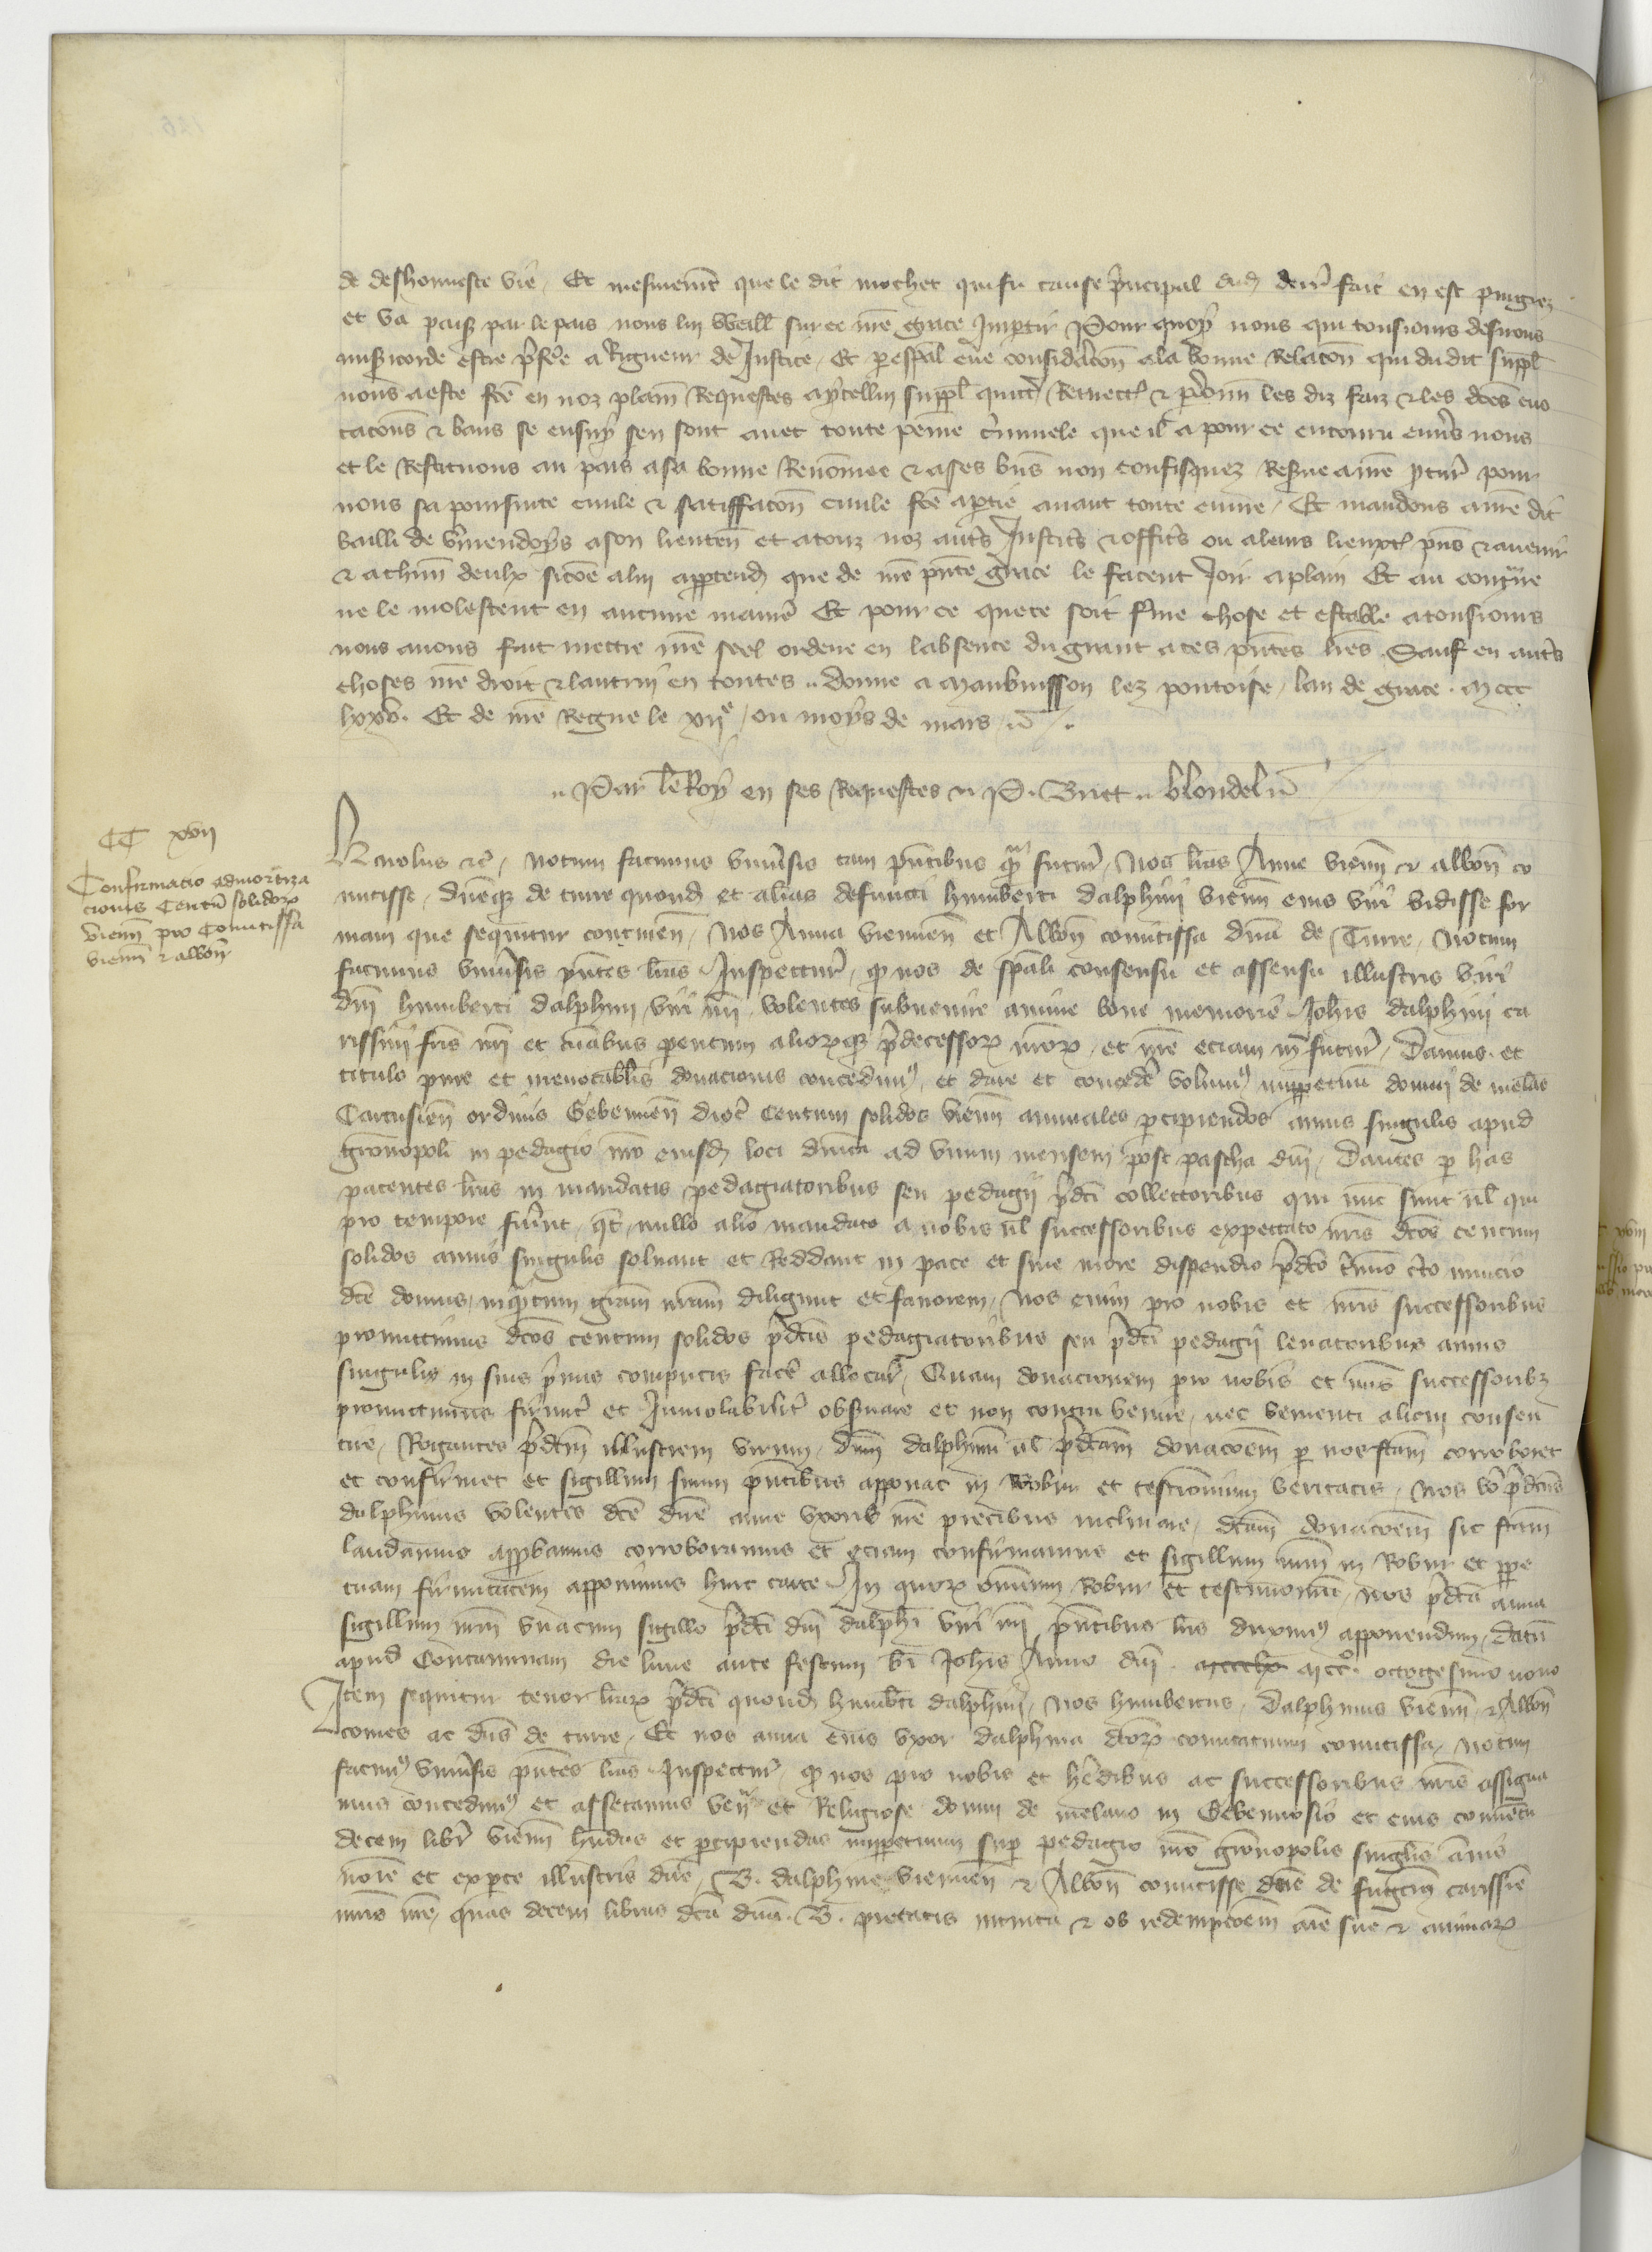 de deshonneste vie, Et mesmemēt que le dit mochet qui fu cause p̄ncipal dud derr̄ fait en est purgiez
et va paisz par le pais nous lui vueill sur ce n̄re grace Imp̄tir Pour quoy nous qui tousiours desirons
mis̄icorde estre p̄feree a Rigueur de Justice, Et p especial eue consideracōn a la bonne Relacōn qui du dit suppl
nous a este fcē en noz plains Requestes aycellui suppl quitt Remectt & pdonn les diz faiz & les dces euo
cacōns & bans se ensuy sen sont auec toute peine c̄iminele que il a pour ce encouru enuers nous
et le Restituons au pais a sa bonne Renōmee & a ses biēs non confisquez Res̄ue a n̄re pcur pour
nous sa poursuite ciuile & satiffacōn ciuile fcē a ptie auant toute euure, Et mandons a n̄re dit
bailli de Vermendoys a son lieuten̄ et a touz noz aut̄s Justic̄s & offic̄s ou a leurs lieuxt p̄ns & auenir
& a chūn deulx sicōe a lui apptend que de n̄re p̄nte grace le facent Joir a plain Et au cont̄ire
ne le molestent en aucune manie Et pour ce que ce soit f̄me chose et estable a tousiours
nous auons fait mectre n̄re seel ordene en labsence du grant a ces p̄ntes l̄res, Sauf en aut̄s
choses n̄re droit & lautrui en toutes .. donne a Maubuisson lez pontoise, lan de grace . M ccc
lxxv. Et de n̄re Regne le xije, ou moys de mars ..
.. Par le Roy en ses Requestes .. P. Britt .. blondel ..
CC xvij
Confirmatio admortiza
cionis Centū solidorꝝ
vienn̄ pro Comitissa
vienn̄ & albon̄
Karolus &c, Notum facimus vniu̅sis tam p̄ntibus q̄m futur̄, Nos l̄ras Anne vienn̄ & albon̄ co
mitisse, dn̄eqz de turre quond et alias defuncti humberti dalphini vienn̄ eius viri vidisse for
mam que sequitur continen̄, Nos Anna viennen̄ et Albon̄ comitissa dn̄a de Turre, Notum
facimus vniu̅sis p̄ntes l̄ras Inspectur̄, q̄ nos de sp̄ali consensu et assensu illustris viri
dn̄i humberti dalphini viri n̄ri, volentes subuenire anime bone memorie Joh̄is dalphini ca
rissimi fr̄is n̄ri et aīabus parentum aliorꝝqz p̄decessorꝝ n̄rorꝝ, et n̄re eciam in futur̄, Damus et
titulo pure et irreuocabilis donacionis concedimꝰ, et dare et concedere volumꝰ imppetuū domui de melano
Cartusien̄ ordinis Gebennen̄ dioc̄ Centum solidos vienn̄ annuales pcipiendos annis singulis apud
Gronopol̄ in pedagio n̄ro eiusd loci dn̄ica ad vnum mensem post pascha dn̄i, Dantes p has
patentes l̄ras in mandatis pedagiatoribus seu pedagij p̄dc̄i collectoribus qui nūc sunt ul qui
pro tempore fu̅int, q̄d nullo alio mandato a nobis ul successoribus expectato n̄ris dc̄os centum
solidos annis singulis soluant et Reddant in pace et sine more dispendio p̄dc̄o t̄mino c̄to nuncio
dc̄e domus, inq̄ntum gr̄am n̄ram diligunt et fauorem, Nos enim pro nobis et n̄ris successoribus
promittimus dc̄os centum solidos p̄dc̄is pedagiatoribus seu p̄dc̄i pedagij leuatoribus annis
singulis in suis p̄mis computis face̅ allocari, Quam donacionem pro nobis et n̄ris successoribz
promittimus firmit̄ et Inuiolabilit̄ obs̄uare et non contra venire, nec venienti alicui consen
tire, Rogantes p̄dc̄m illustrem virum, dn̄m dalphinū ut p̄dc̄am donacōem p nos fc̄am corroboret
et confirmet et sigillum suum p̄ntibus apponat in Robur et testimonium veritatis, Nos v̄o p̄dc̄us
dalphinus volentes dc̄e dn̄e anne vxoris n̄re precibus inclinare, dc̄am donacōem sic fc̄am
laudamus appbamus corroboramus et eciam confirmamus et sigillum n̄rm in Robur et ppe
tuam firmitatem apponimus huic carte In quorꝝ omnium Robur et testimoniū, Nos p̄dc̄a anna
sigillum n̄rm vnacum sigillo p̄dc̄i dn̄i dalphī viri n̄ri p̄ntibus l̄ris duximꝰ apponendum, Datū
apud Conuaminam die lune ante festum bī Joh̄is Anno dn̄i . Mcco. octogesimo nono
Item sequitur tenor l̄rarꝝ p̄dc̄i quond humb̄ti dalphini, Nos humbertus, Dalphinus vienn̄, & Albon̄
comes ac dn̄s de turre, Et nos anna eius vxor dalphina dc̄orꝝ comitatuum comitissa, Notum
facimꝰ vniu̅sis p̄ntes l̄ras Inspectur̄, q̄ nos pro nobis et he̅dibus ac successoribus n̄ris assigna
mus concedimꝰ et assetamus ven̄ et Religiose domui de melano in Gebennesio et eius conuentui
decem libr̄ vienn̄ h̄ndas et pcipiendas imppetuum sup pedagio n̄ro gronopolis singulis annis
noīe et ex pte illustris dn̄e, B. dalphine viennen̄ & Albon̄ comitisse dn̄e de fucign̄ carissīe
m̄ris n̄re, quas decem libras dc̄a dn̄a . B. pietatis intuitu & ob redempcōem aīe sue & animarꝝ